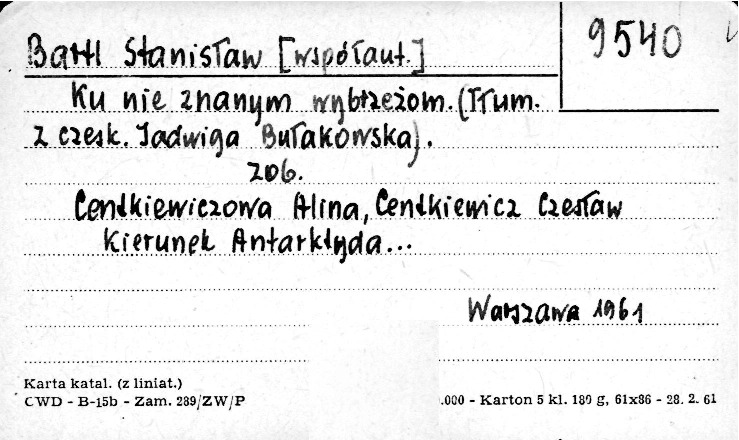 Bartl Stanisław [współaut.]
9540
Ku nie znanym wybrzeżom. (Tłum.
z czesk. Jadwiga Bułakowska).
zob.
Centkiewiczowa Alina, Centkiewicz Czesław
Kierunek Antarktyda...
Warszawa 1961
Karta katal. (z liniat.)
CWD - B-15b - Zam. 289/ZW/P
.000 - Karton 5 kl. 180 g, 61x86 - 28. 2. 61